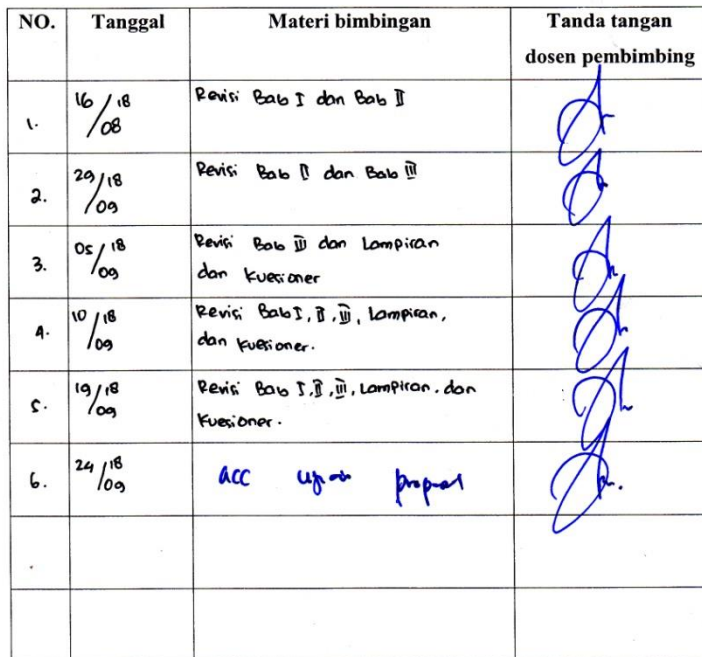 NO. Tanggal Materi bimbingan Tanda tangan
dosen pembimbing
1. 16/18/08 Revisi Bab I dan Bab II
2. 29/18/09 Revisi Bab II dan Bab III
3. 05/18/09 Revisi Bab III dan Lampiran
dan Kuesioner
4. 10/18/09 Revisi Bab I, II, III, Lampiran,
dan Kuesioner.
5. 19/18/09 Revisi Bab I, II, III, Lampiran, dan
Kuesioner.
6. 24/18/09 acc ujian proposal